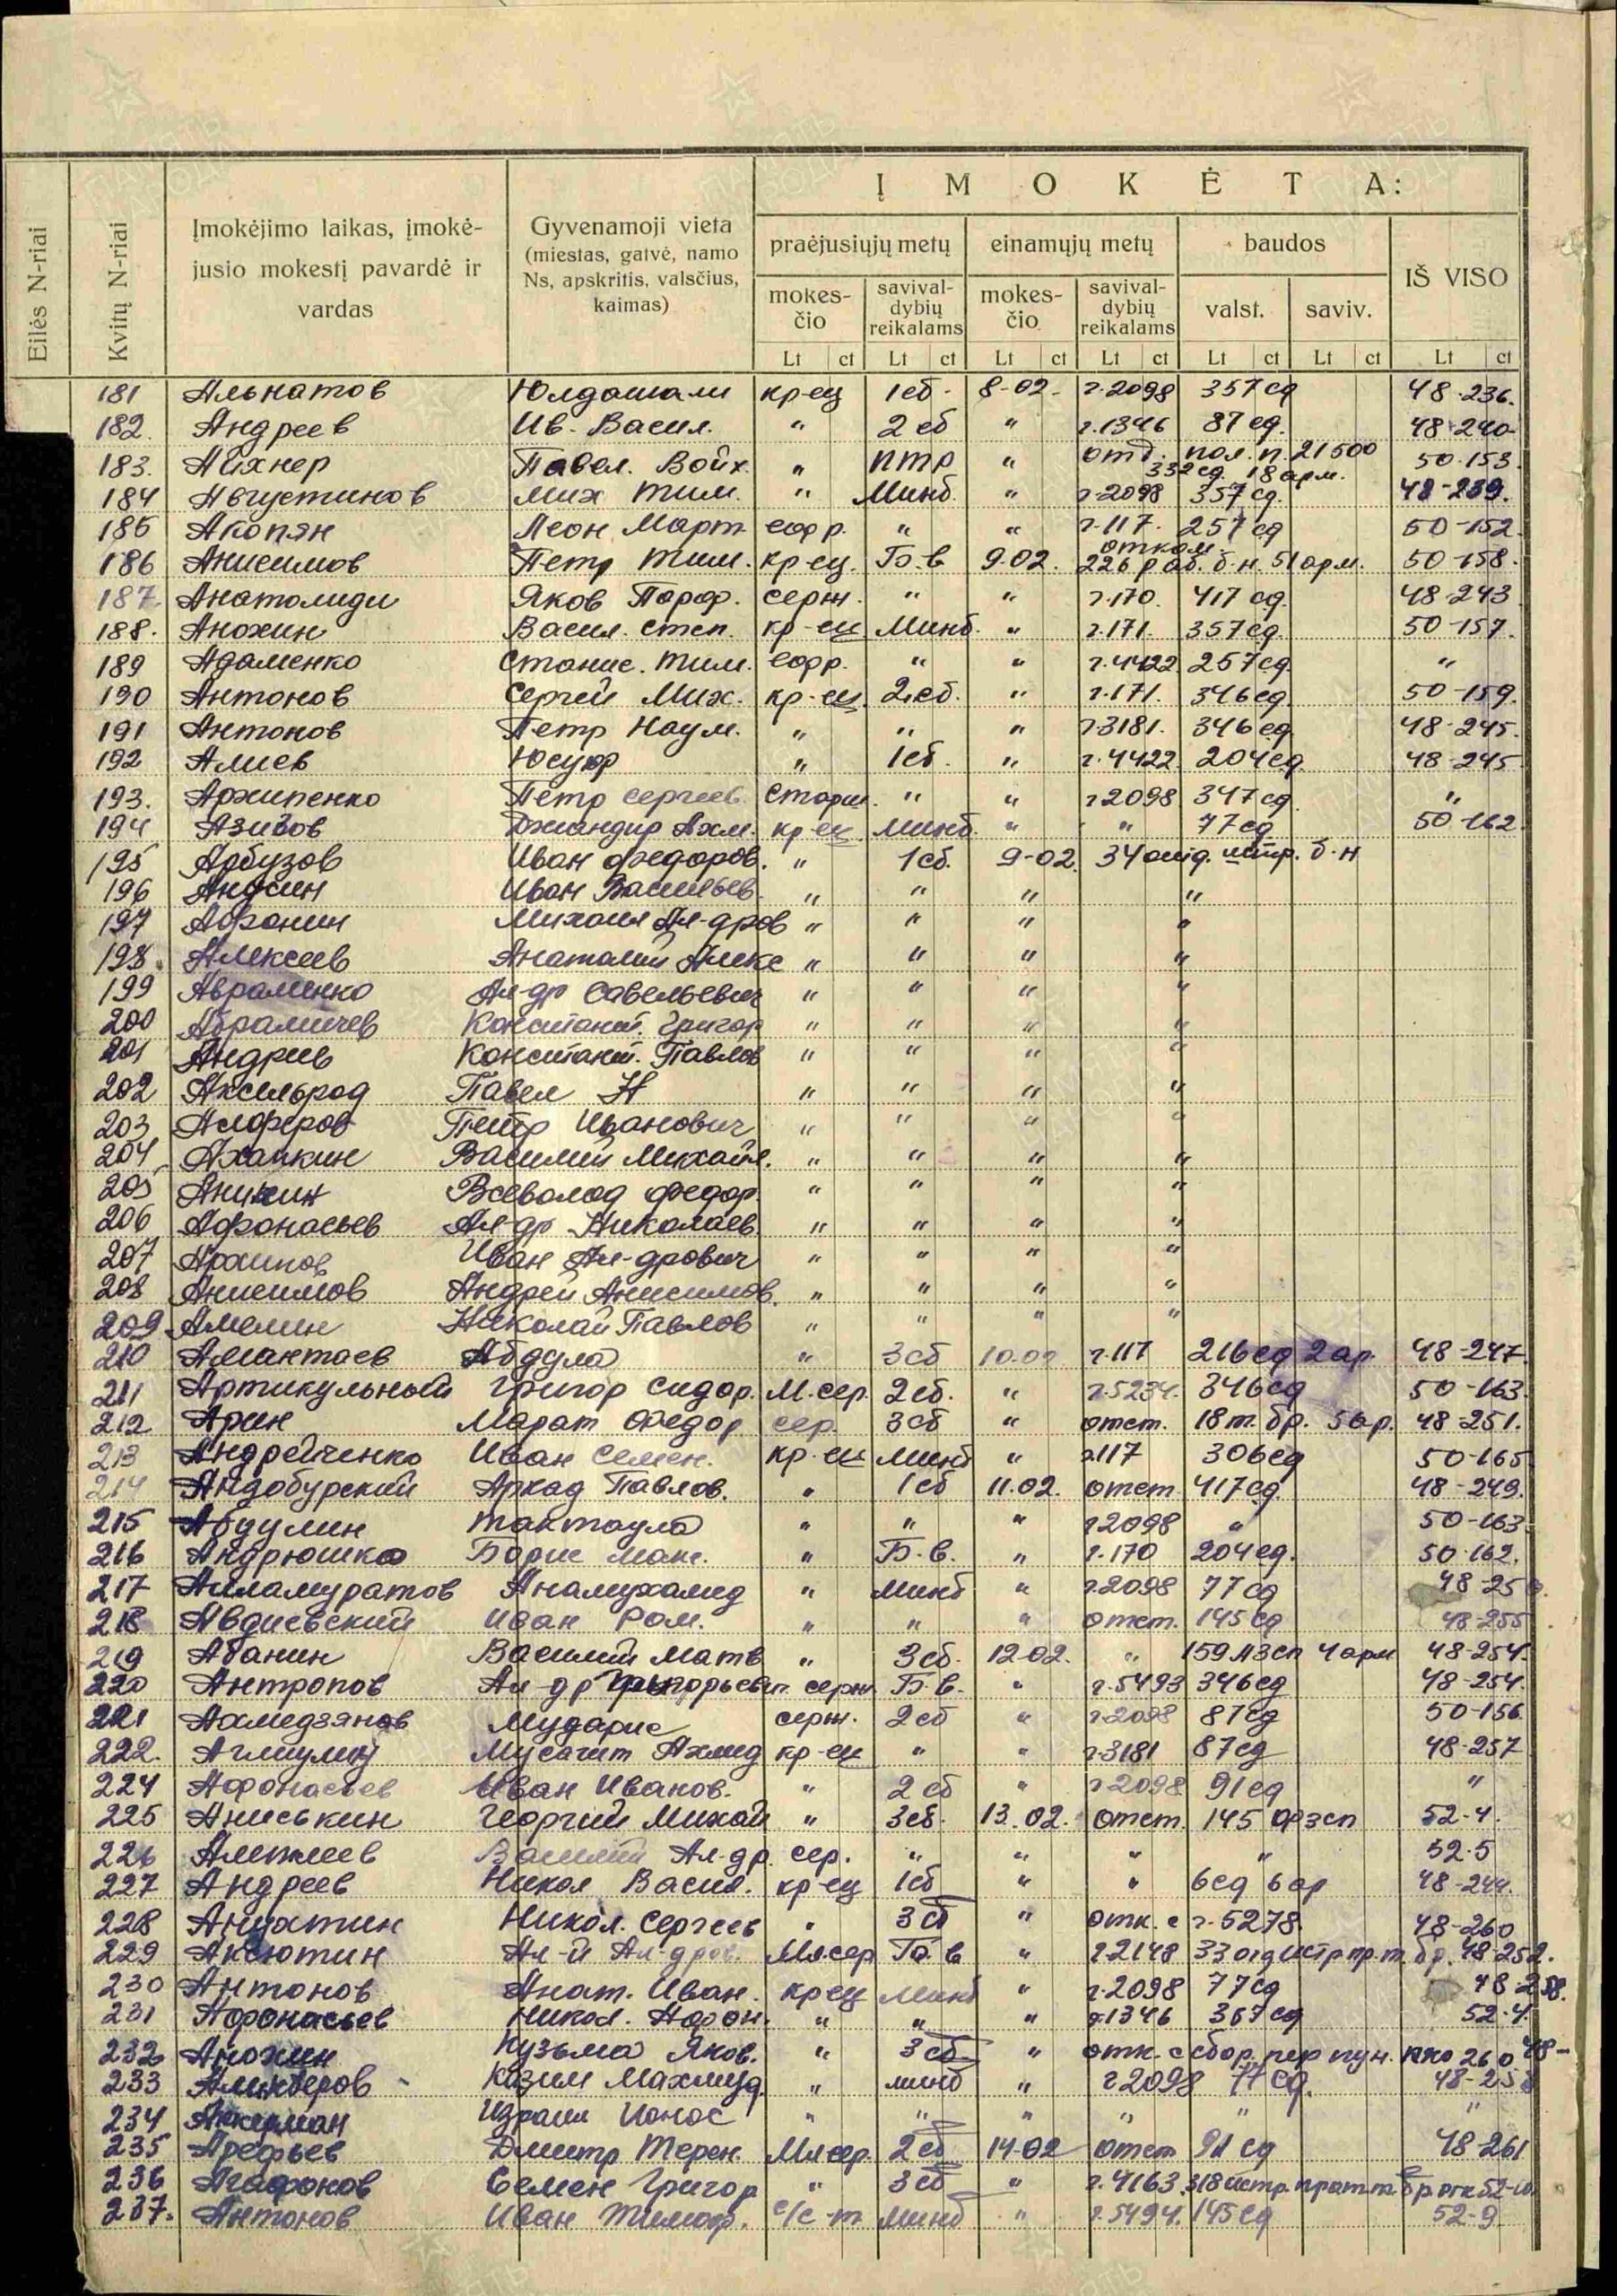 Į M O K Ė T A:
Eilės N-riai
Kvitų N-riai
Įmokėjimo laikas, įmokė-
jusio mokestį pavardė ir
vardas
Gyvenamoji vieta
(miestas, gatvė, namo
Ns, apskritis, valsčius,
kaimas)
praėjusiųjų metų einamųjų metų baudos IŠ VISO
mokes-
čio
savival-
dybių
reikalams
mokes-
čio
savival-
dybių
reikalams
valst. saviv.
Lt ct Lt ct Lt ct Lt ct Lt ct Lt ct Lt ct
181 Альнатов Юлдашали кр-ец 1сб. 8-02. г.2098 357 сд 48-236.
182. Андреев Ив. Васил. " 2 сб " г.1346 87 сд. 48-240
183. Айхнер Павел. Войх. " птр " отд. пол. п. 21500 50-153.
332 сд. 18 арм.
184 Августинов Мих Тим. " Минб. " г-2098 357 сд. 48-239.
185 Акопян Леон Март. ефр. " " г.117. 257 сд 50-152.
186 Анисимов Петр Тим. кр-ец. Б-в 9-02. отком. 226 раб. б-н. 51 арм. 50-158.
187 Анатолиди Яков Парф. серж. " " г.170. 417 сд. 48-243
188. Анохин Васил. Степ. кр-ец Минб. " г.171. 357 сд. 50-157.
189 Адаменко Станис. Тим. ефр. " " г.4422 257 сд. "
190 Антонов Сергей Мих. кр-ец. 2 сб. " г.171. 346 сд. 50-159.
191 Антонов Петр Наум. " " " г3181. 346 сд. 48-245.
192 Алиев Юсуф " 1сб. " г.4422. 204 сд. 48-245.
193. Архипенко Петр Сергеев. Старш. " " г2098 347 сд. "
194 Азизов Джандир Ахм. кр-ец минб. " " 77 сд 50-162
195 Арбузов Иван Федоров. " 1сб. 9-02. 34 отд. штр. б-н
196 Анусин Иван Васильев. " " " "
197 Афонин Михаил Ал-дров " " " "
198. Алексеев Анатолий Алекс " " " "
199 Авраменко Ал-др Савельевич " " " "
200 Абрамичев Констант. Григор " " " "
201 Андреев Констант. Павлов " " " "
202 Аксельрод Павел Н " " " "
203 Алферов Петр Иванович " " " "
204 Ахапкин Василий Михайл. " " " "
205 Аникин Всеволод Федор. " " " "
206 Афонасьев Ал-др Николаев. " " " "
207 Архипов Иван Ал-дрович " " " "
208 Анисимов Андрей Анисимов. " " " "
209 Амелин Николай Павлов " " " "
210 Амантаев Абдула " 3сб 10.02 г.117 216 сд 2 ар. 48-247.
211 Артикульный Григор Сидор. М.сер. 2сб. " г.5234. 346 сд 50-163.
212 Арин Марат Федор сер. 3сб " отст. 18 т. бр. 5 ар. 48-251.
213 Андрейченко Иван Семен. кр-ец минб " г117 306 сд 50-165
214 Андобурский Аркад Павлов. " 1сб 11.02. отст. 417 сд. 48-249.
215 Абдулин Тактаула " " " г2098 " 50-163.
216 Андрюшко Борис Макс. " Б-в. " г.170 204 сд. 50-162.
217 Атламуратов Анамухамед " минб " г.2098 77 сд 48-25
218 Авдиевский Иван Ром. " " " отст. 145 сд 48-255
219 Абанин Василий Матв " 3сб. 12-02. " 159 АЗСП 4 арм 48-254.
220 Антропов Ал-др Григорьев ст. серж. Б-в. " г.5493 346 сд 48-254.
221 Ахмедзянов Мударис серж. 2сб " г2098 87 сд 50-156.
222. Аглиулин Мусагит Ахмед кр-ец " " г3181 87 сд 48-257
224 Афонасьев Иван Иванов. " 2 сб " г-2098. 91 сд "
225 Аниськин Георгий Михай " 3сб. 13.02. отст. 145 фрзсп 52-4.
226 Василий Ал-др. сер. " " " " 52-5
227 Андреев Никол Васил. кр-ец 1сб " " 6 сд 6 ар 48-244.
228 Никол. Сергеев " 3сб " отк. с г.5278. 48-260
229 Аксютин Ал-й Ал-дров. Мл.сер Б-в " г.2148 33 отд истр пр. т. бр. 48-252.
230 Антонов Анат. Иван. кр-ец минб " г.2098 77 сд 48-258.
231 Афонасьев Никол. Афон. " " " г.1346 357 сд 52-4.
232 Анохин Кузьма Яков. " 3сб " отк. с сбор. пер пун. 260 48-
233 Казим Махмуд. " минб " г2098 77 сд. 48-25
234 Аккерман Израил Ионос " " " " " "
235 Арефьев Дмитр Терен. Мл.сер. 2сб 14-02 отст 91 сд 48-261
236 Агафонов Семен Григор " 3сб " г.4163. 318 истр. прот. т. бр ргк 52-10.
237. Антонов Иван Тимоф. с/с-т минб " г.5494. 145 сд 52-9.